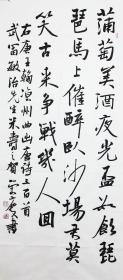 蒲萄美酒夜光盃欲飲琵
琶馬上催醉臥沙場君莫
笑古來爭戰幾人回
右唐王翰涼州曲出唐詩三百首
武富敏治先生米壽之賀